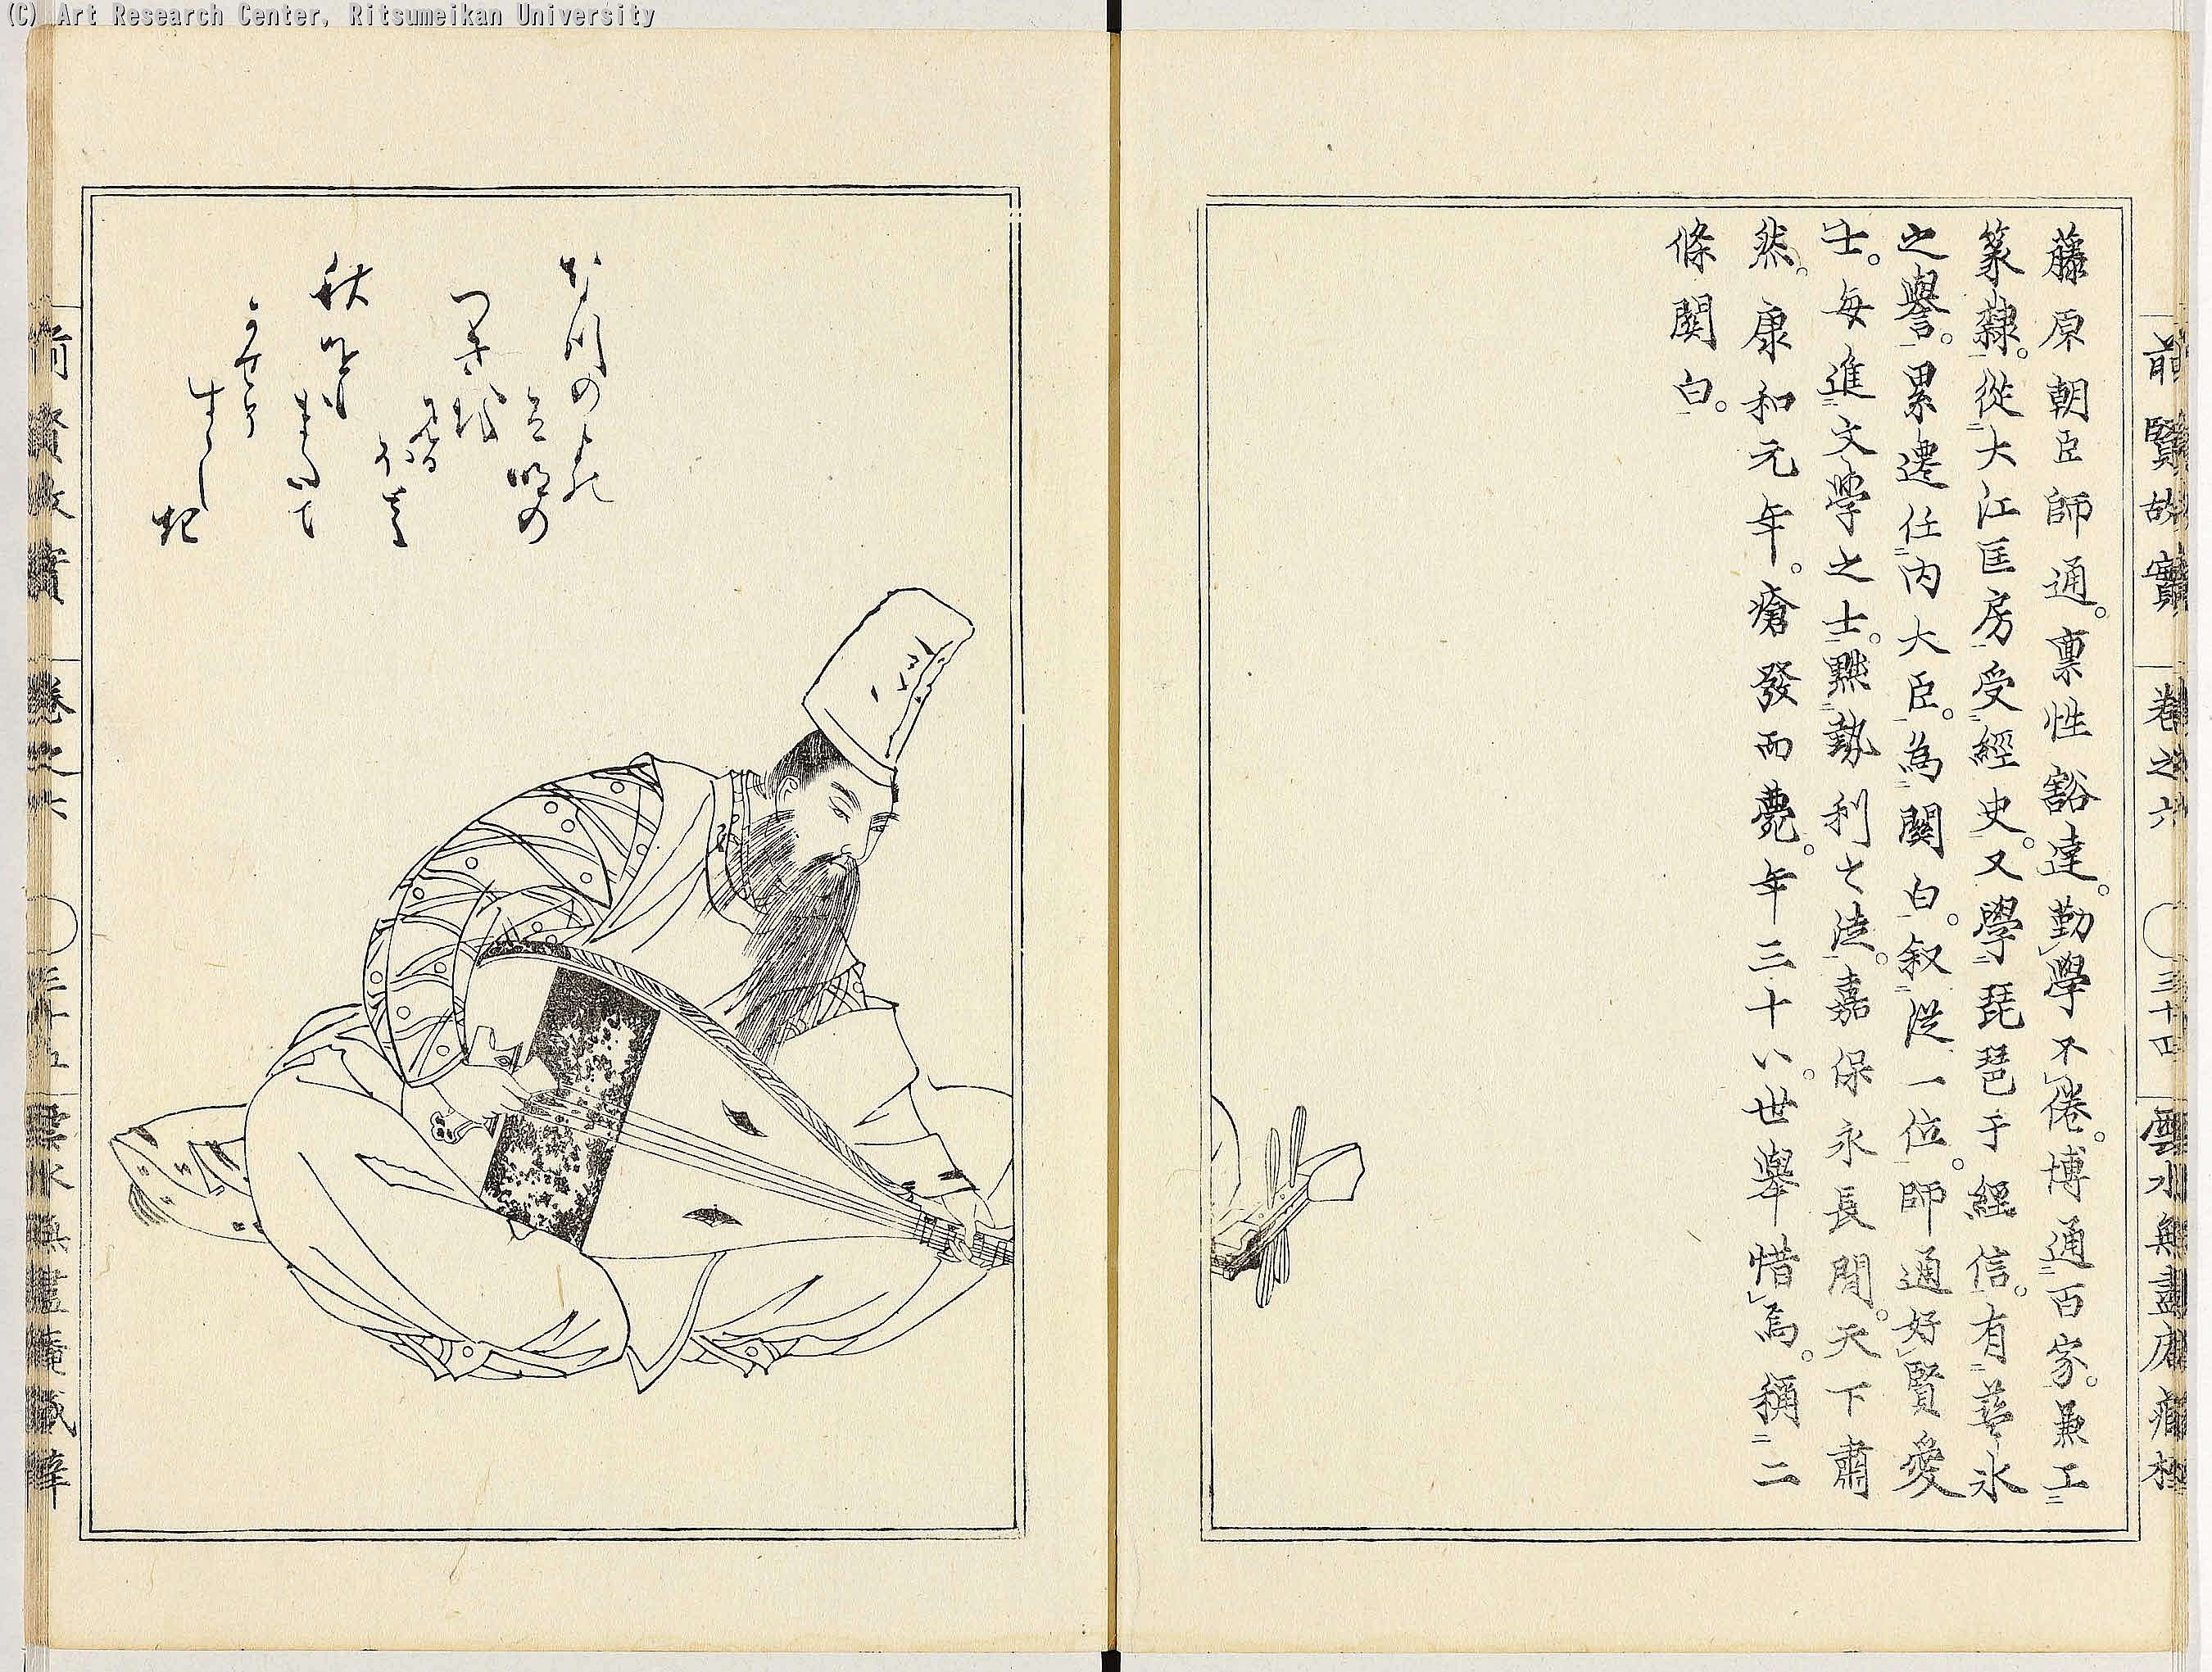 (C) Art Research Center, Ritsumeikan University
前賢故實 卷之六 三十四 雲水無盡庵藏梓
藤原朝臣師通。稟性豁達。勤學不倦。博通百家。兼工
篆隷。從大江匡房受經史。又學琵琶于經信。有氷
之譽。累遷任内大臣。為關白。叙從一位。師通好賢愛
士。毎進文學之士。黙勢利之徒。嘉保永長間。天下肅
然。康和元年。瘡發而薨。年三十八。世舉惜焉。稱二
條關白。
なつのよの
有明の
つきを
見る
ほと尓
秋をも
またて
かせそ
すゝし
起
前賢故實 卷之六 三十五 雲水無盡庵藏梓